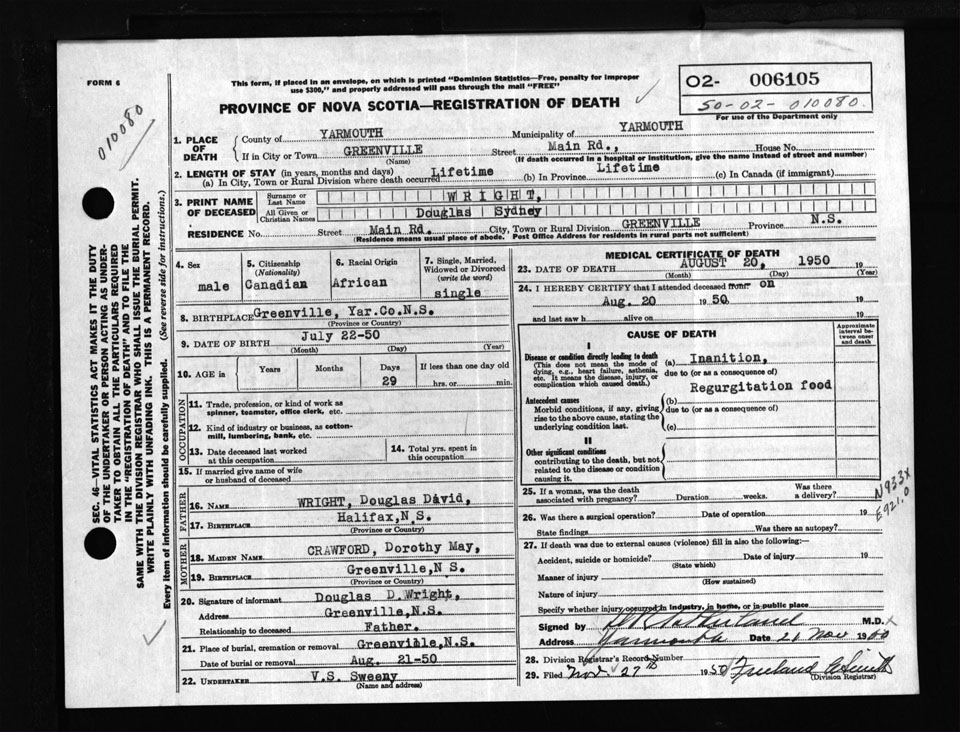 FORM 6
This form, if placed in an envelope, on which is printed "Dominion Statistics—Free, penalty for improper
use $300," and properly addressed will pass through the mail "FREE"
O2- 006105
50-02-010080
For use of the Department only
010080
PROVINCE OF NOVA SCOTIA—REGISTRATION OF DEATH
1. PLACE OF DEATH
County of YARMOUTH Municipality of YARMOUTH
If in City or Town GREENVILLE Street Main Rd., House No.
(Name) (If death occurred in a hospital or institution, give the name instead of street and number)
2. LENGTH OF STAY (in years, months and days)
(a) In City, Town or Rural Division where death occurred Lifetime (b) In Province Lifetime (c) In Canada (if immigrant)
3. PRINT NAME OF DECEASED
Surname or Last Name WRIGHT,
All Given or Christian Names Douglas Sydney
RESIDENCE No. Street Main Rd. City, Town or Rural Division GREENVILLE Province N.S.
(Residence means usual place of abode. Post Office Address for residents in rural parts not sufficient)
4. Sex male
5. Citizenship (Nationality) Canadian
6. Racial Origin African
7. Single, Married, Widowed or Divorced (write the word) single
8. BIRTHPLACE Greenville, Yar.Co.N.S.
(Province or Country)
9. DATE OF BIRTH July 22-50
(Month) (Day) (Year)
10. AGE in Years Months Days 29 If less than one day old hrs. or min.
OCCUPATION
11. Trade, profession, or kind of work as spinner, teamster, office clerk, etc.
12. Kind of industry or business, as cotton-mill, lumbering, bank, etc.
13. Date deceased last worked at this occupation
14. Total yrs. spent in this occupation
15. If married give name of wife or husband of deceased
FATHER
16. NAME WRIGHT, Douglas David,
17. BIRTHPLACE Halifax,N.S.
(Province or Country)
MOTHER
18. MAIDEN NAME CRAWFORD, Dorothy May,
19. BIRTHPLACE Greenville,N S.
(Province or Country)
20. Signature of informant Douglas D.Wright,
Address Greenville,N.S.
Relationship to deceased Father.
21. Place of burial, cremation or removal Greenville,N.S.
Date of burial or removal Aug. 21-50
22. UNDERTAKER V.S. Sweeny
(Name and address)
MEDICAL CERTIFICATE OF DEATH
23. DATE OF DEATH AUGUST 20, 1950 19
(Month) (Day) (Year)
24. I HEREBY CERTIFY that I attended deceased from on
Aug. 20 1950 19
and last saw h alive on 19
CAUSE OF DEATH
Approximate interval between onset and death
I
Disease or condition directly leading to death
(This does not mean the mode of dying, e.g., heart failure, asthenia, etc. It means the disease, injury, or complication which caused death.)
(a) Inanition,
due to (or as a consequence of)
Regurgitation food
Antecedent causes
Morbid conditions, if any, giving rise to the above cause, stating the underlying condition last.
(b)
due to (or as a consequence of)
(c)
II
Other significant conditions
contributing to the death, but not related to the disease or condition causing it.
25. If a woman, was the death associated with pregnancy? Duration weeks. Was there a delivery?
N933X
E921.0
26. Was there a surgical operation? Date of operation 19
State findings Was there an autopsy?
27. If death was due to external causes (violence) fill in also the following:—
Accident, suicide or homicide? Date of injury 19
(State which)
Manner of injury
(How sustained)
Nature of injury
Specify whether injury occurred in industry, in home, or in public place
Signed by M.D.
Address Yarmouth Date 21 Nov 19
28. Division Registrar's Record Number
29. Filed Nov 27th 1950 Smith
(Division Registrar)
SEC. 46—VITAL STATISTICS ACT MAKES IT THE DUTY
OF THE UNDERTAKER OR PERSON ACTING AS UNDER-
TAKER TO OBTAIN ALL THE PARTICULARS REQUIRED
IN THE "REGISTRATION OF DEATH" AND TO FILE THE
SAME WITH THE DIVISION REGISTRAR WHO SHALL ISSUE THE BURIAL PERMIT.
WRITE PLAINLY WITH UNFADING INK. THIS IS A PERMANENT RECORD.
Every item of information should be carefully supplied. (See reverse side for instructions.)